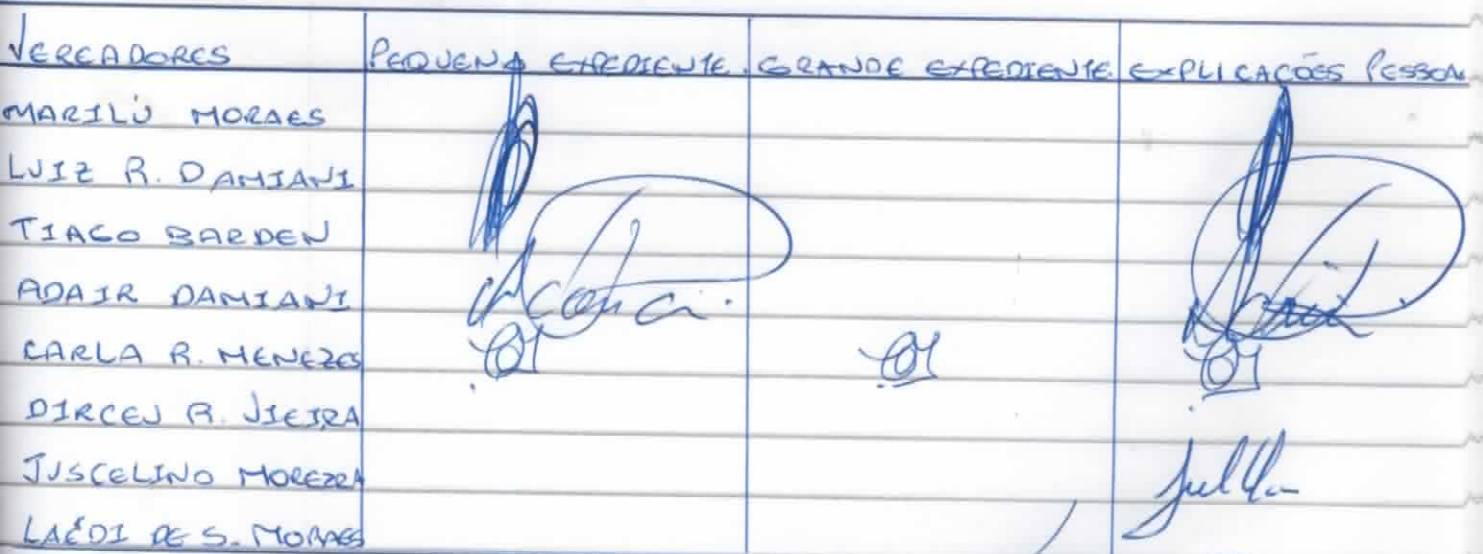 VEREADORES PEQUENO EXPEDIENTE. GRANDE EXPEDIENTE EXPLICAÇÕES PESSOA
MARILÚ MORAES
LUIZ R. DAMIANI
TIAGO BARDEN
ADAIR DAMIANI
CARLA R. MENEZES
DIRCEU R. VIEIRA
JUSCELINO MOREIRA
LAÉDI DE S. MORAES